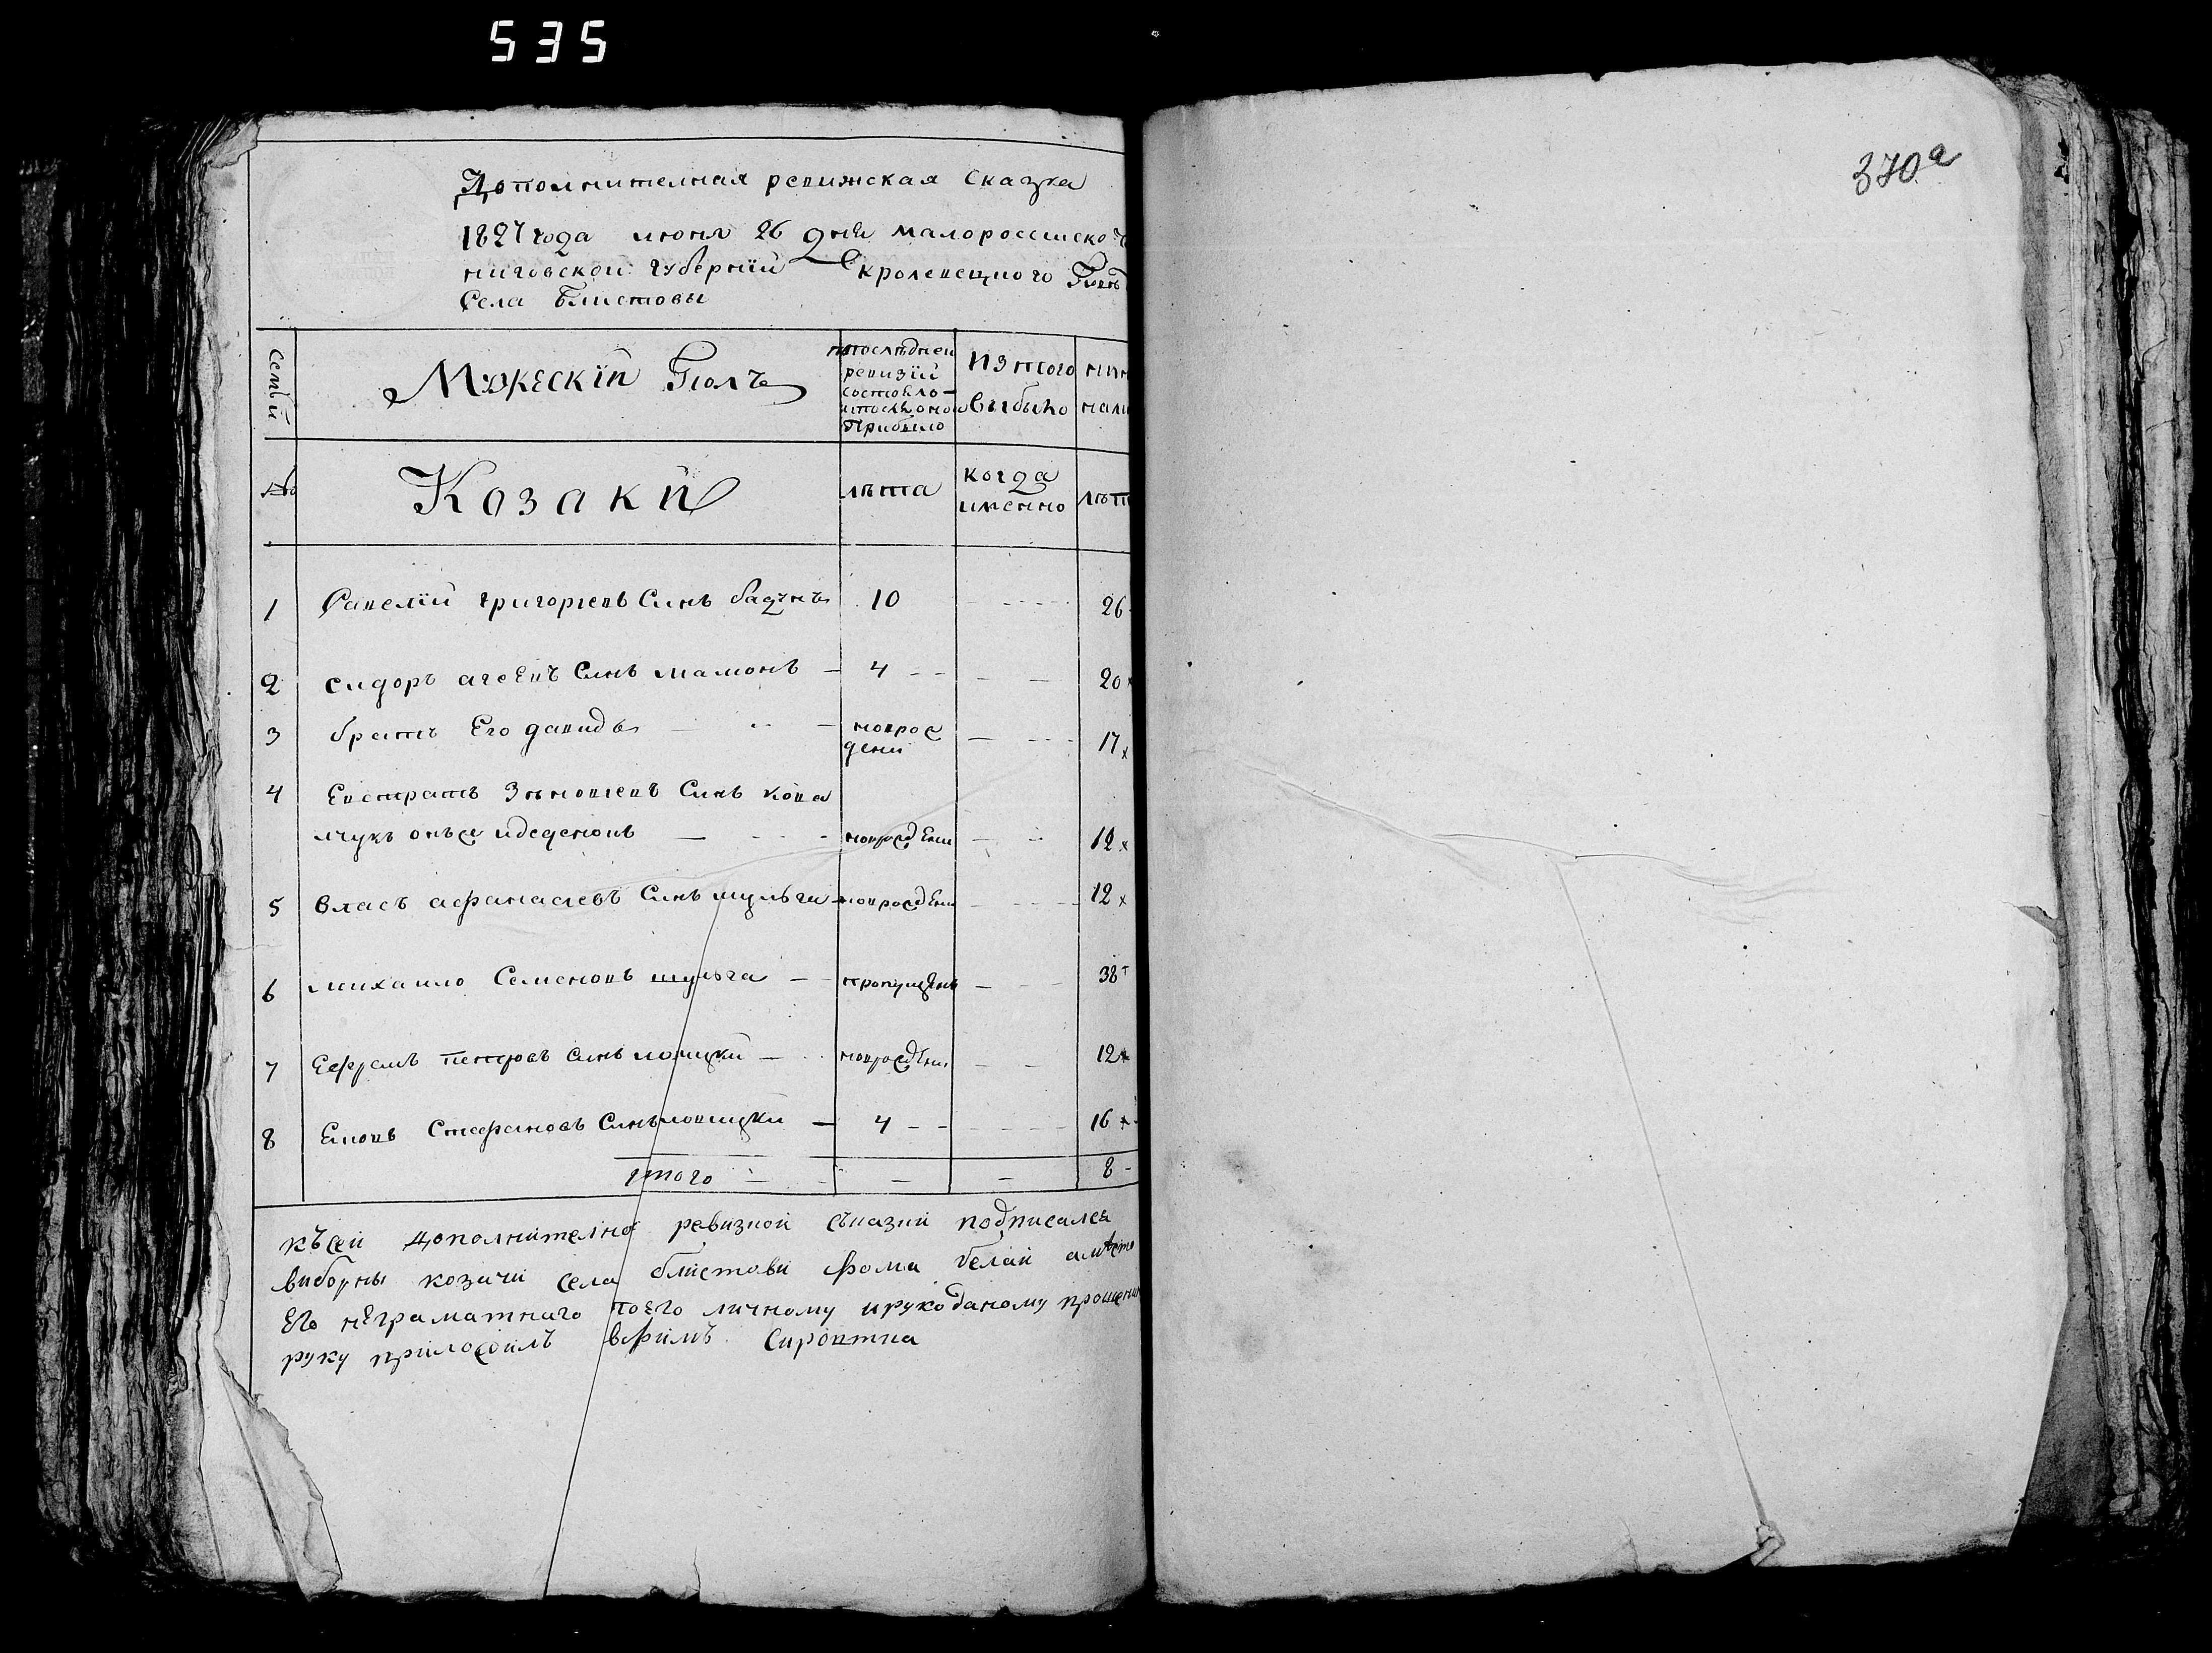 535
370а
Дополнителная ревижская Сказка
1827 года июня 26 дня малороссииско Че
ниговскои губернїи кролевецкого Повѣ
Села Блистовы
Семьи
Мужескїй Полъ
попослѣдней
ревизїи
состояло
ипослѣ оной
Прибыло
Изтого
выбыло
нали
№
Козаки
лѣта
когда
именно
лѣт
1 Савелїй григорїевъ Синъ бадунъ 10 26
2 сидоръ агеевъ Синъ мамонъ 4 20
3 братъ Его давидъ новорож
дени 17
4 Евстратъ Зѣновїевъ Синъ кова
лчукъ онъже новорождени 12
5 власъ афанасїевъ Синъ шульга новорождени 12
6 михаило Семеновъ шульга пропущенъ 38
7 Ефремъ петровъ синъ новорождени 12
8 Стефановъ Синъ 4 16
итого 8
късей дополнителной ревизной сказки подписался
виборны козачи села блистови фома белай аместо
его неграматнаго поего личному ирукоданому прошению
руку приложилъ Сироптна